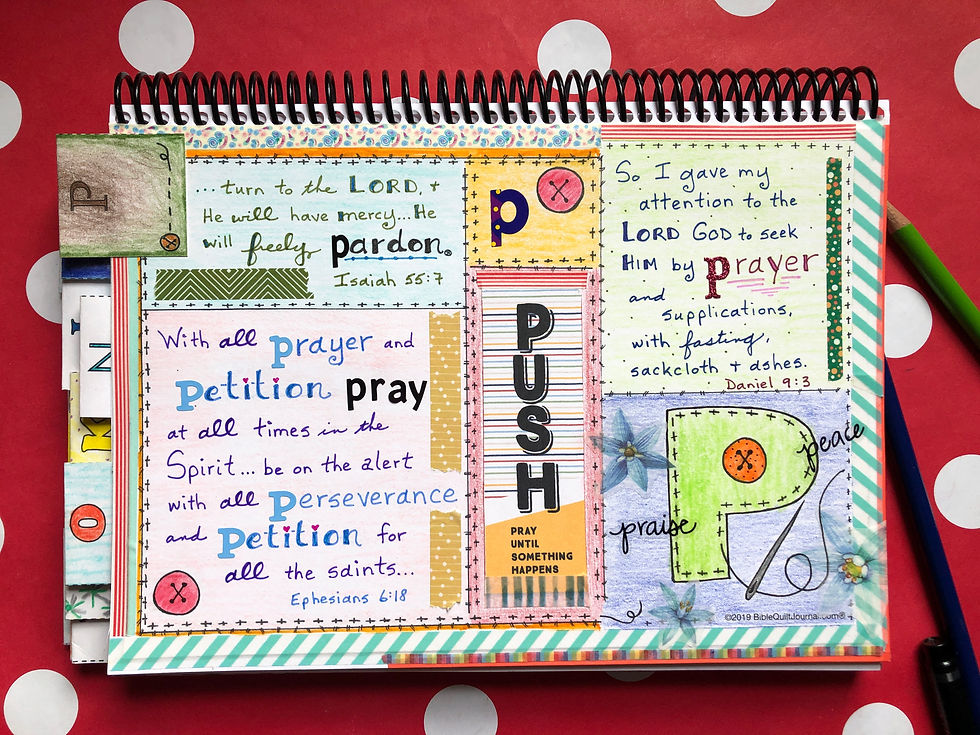 P
...turn to the LORD, +
He will have mercy...He
will freely pardon.
Isaiah 55:7
p
So I gave my
attention to the
LORD GOD to seek
HIM by prayer
and
supplications,
with fasting,
sackcloth + ashes.
Daniel 9:3
With all prayer and
Petition pray
at all times in the
Spirit... be on the alert
with all Perseverance
and Petition for
all the saints...
Ephesians 6:18
PUSH
PRAY
UNTIL
SOMETHING
HAPPENS
peace
praise
P
©2019 BibleQuiltJournal.com®
N
O